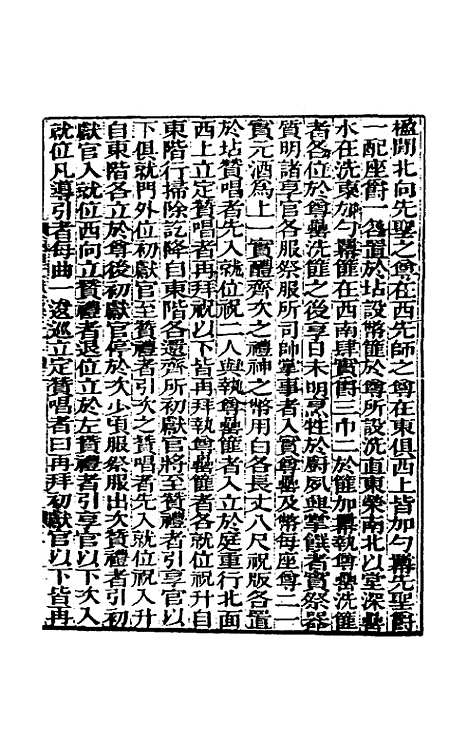 楹間北向先聖之尊在西先師之尊在東俱西上皆加勺冪先聖爵
一配座爵一各置於坫設幣篚於尊所設洗直東榮南北以堂深罍
水在洗東加勺冪篚在西南肆實爵三巾二於篚加冪執尊罍洗篚
者各位於尊罍洗篚之後享日未明烹牲於廚夙興掌饌者實祭器
質明諸享官各服祭服所司帥掌事者入實尊罍及幣每座尊二一
實元酒為上一實醴齊次之禮神之幣用白各長丈八尺祝版各置
於坫贊唱者先入就位祝二人與執尊罍篚者入立於庭重行北面
西上立定贊唱者再拜祝以下皆再拜執尊罍篚者各就位祝升自
東階行掃除訖降自東階各還齊所初獻官將至贊禮者引享官以
下俱就門外位初獻官至贊禮者引之次贊唱者先入就位祝入升
自東階各立於尊後初獻官停於次少頃服祭服出次贊禮者引初
獻官入就位西向立贊禮者退位立於左贊禮者引享官以下次入
就位凡導引者每曲一逡巡立定贊唱者曰再拜初獻官以下皆再